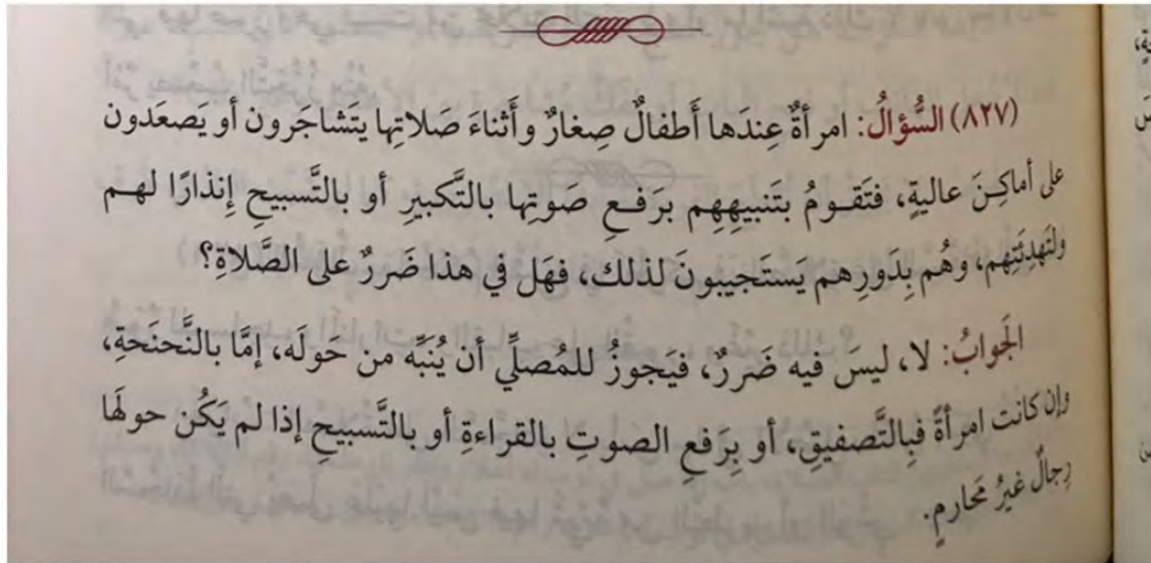 (٨٢٧) السُّؤالُ: امرأةٌ عِندَها أَطفالٌ صِغارٌ وأَثناءَ صَلاتِها يتَشاجَرون أو يَصعَدون
على أماكِنَ عاليةٍ، فتَقومُ بتَنبيهِهِم برَفعِ صَوتِها بالتَّكبيرِ أو بالتَّسبيحِ إِنذارًا لهم
ولتَهدِئَتِهم، وهُم بِدَورِهم يَستَجيبونَ لذلك، فهَل في هذا ضَررٌ على الصَّلاةِ؟
الجَوابُ: لا، ليسَ فيه ضَررٌ، فيَجوزُ للمُصلِّي أن يُنَبِّه من حَولَه، إمَّا بالنَّحنَحةِ،
وإن كانت امرأةً فبِالتَّصفيقِ، أو بِرَفعِ الصوتِ بالقراءةِ أو بالتَّسبيحِ إذا لم يَكُن حولَها
رِجالٌ غيرُ مَحارمٍ.